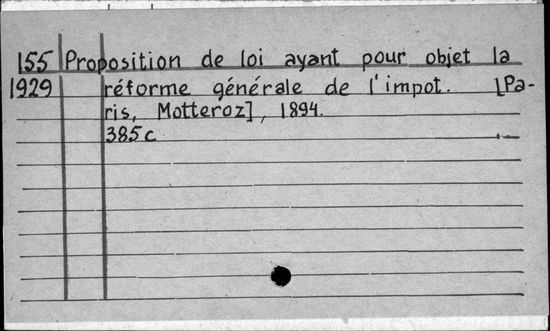 155 Proposition de loi ayant pour objet la
1929 réforme générale de l'impot. [Pa-
ris, Motteroz], 1894.
385c